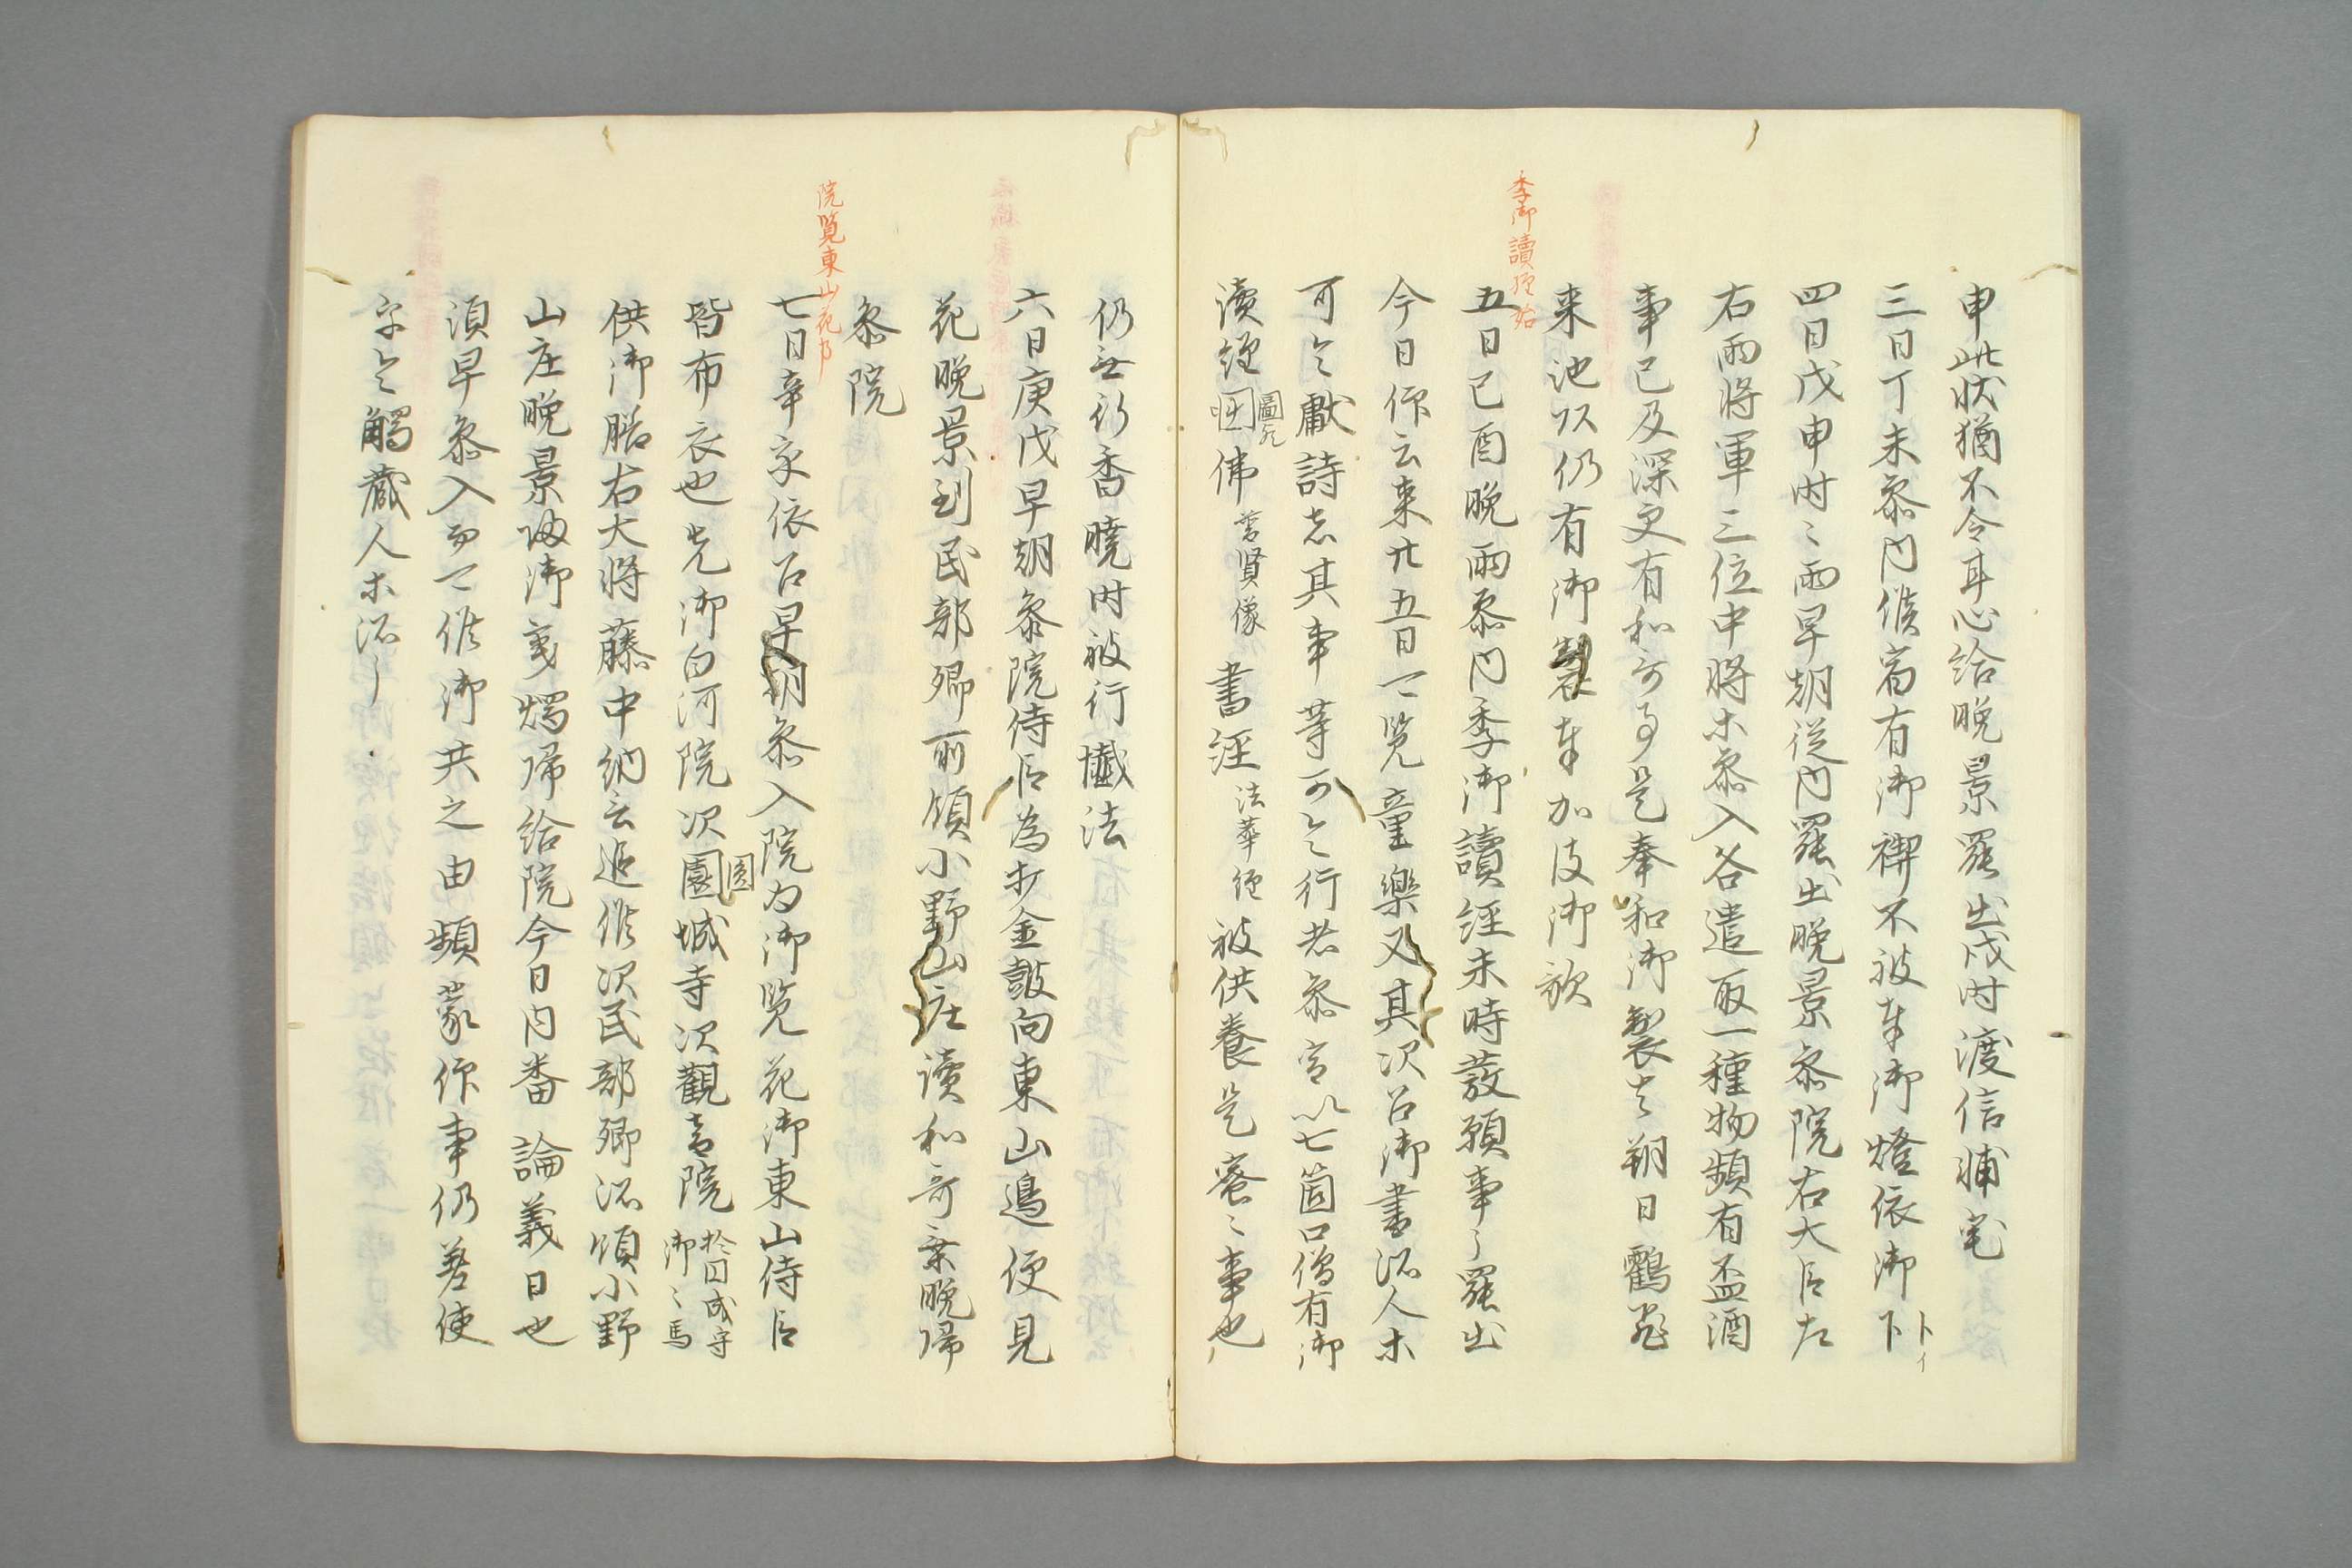 申此状猶不令耳心給晩景罷出戌时渡信輔宅
三日丁未参内候宿有御禊不被奉御燈依御下
卜イ
四日戊申时〻雨早朝従内罷出晩景参院右大臣左
右両将軍三位中将ホ参入各遣取一種物頻有盃酒
事已及深更有和哥事是奉和御製去朔日鸖飛
来池頭仍有御製奉加彼御歌
季御讀經始
五日己酉晩雨参内季御讀經未時發願事〻罷出
今日仰云来廿五日可覧童樂又其次召御書所人ホ
可令獻詩者其事等可令行者参宮以七箇口僧有御
讀經
圖死
佛普賢像 書經法華経 被供養是密〻事也
仍無行香曉时被行懺法
六日庚戌早朝参院侍臣為打金皷向東山邉便見
花晩景到民部卿所領小野山庄讀和哥乗晩帰
参院
院覧東山花事
七日辛亥依召早朝参入院为御覧花御東山侍臣
皆布衣也先御白河院次園城寺次觀音院
圓
於円成寺
御〻馬
供御膳右大将藤中納言追候次民部卿所領小野
山庄晩景還御
燭帰給院今日内番論義日也
須早参入而可候御共之由頻蒙仰事仍差使
字令觸蔵人ホ所了